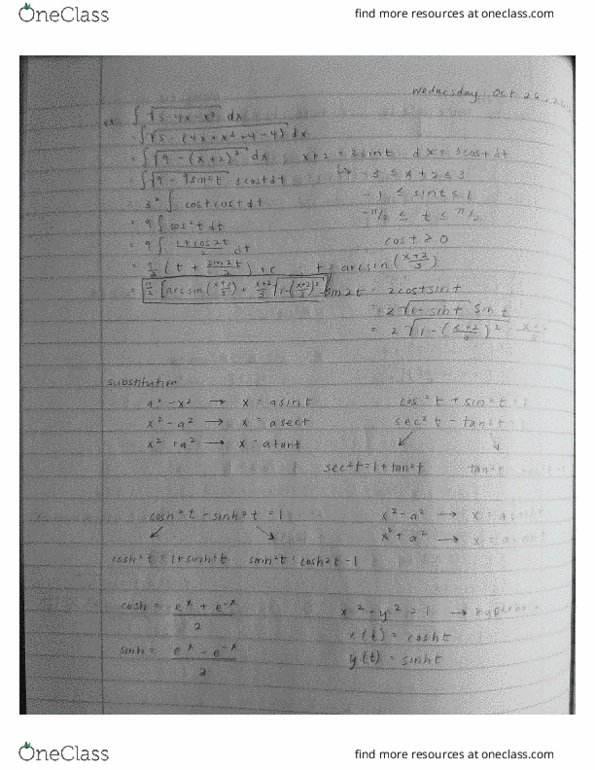 OneClass
find more resources at oneclass.com
Wednesday Oct 26,
ex. ∫ √5-4x-x² dx
= ∫ √5-(4x+x²+4-4) dx
= ∫ √9-(x+2)² dx ; x+2 = 3sint dx = 3costdt
= ∫ √9-9sin²t 3costdt ↳ -3 ≤ x+2 ≤ 3
= 3² ∫ costcostdt -1 ≤ sint ≤ 1
= 9 ∫ cos²tdt -π/2 ≤ t ≤ π/2
= 9 ∫ (1+cos2t)/2 dt cost ≥ 0
= 9/2 (t + sin2t/2) + c t = arcsin((x+2)/3)
= 9/2 [arcsin((x+2)/3) + (x+2)/3 √1-((x+2)/3)² sin2t = 2costsint
= 2 √1-sin t sint
= 2 √1-((x+2)/3)²
substitution
a²-x² → x = asint cos²t + sin²t = 1
x²-a² → x = asect sec²t - tan²t
x²+a² → x = atant
sec²t = 1+tan²t tan²t
cosh²t - sinh²t = 1 x²-a² → x =
x²+a² → x =
cosh²t = 1+sinh²t sinh²t = cosh2t-1
cosh = (eˣ + e⁻ˣ)/2 x²-y² = 1 →
x(t) = cosht
sinh = (eˣ - e⁻ˣ)/2 y(t) = sinht
OneClass
find more resources at oneclass.com